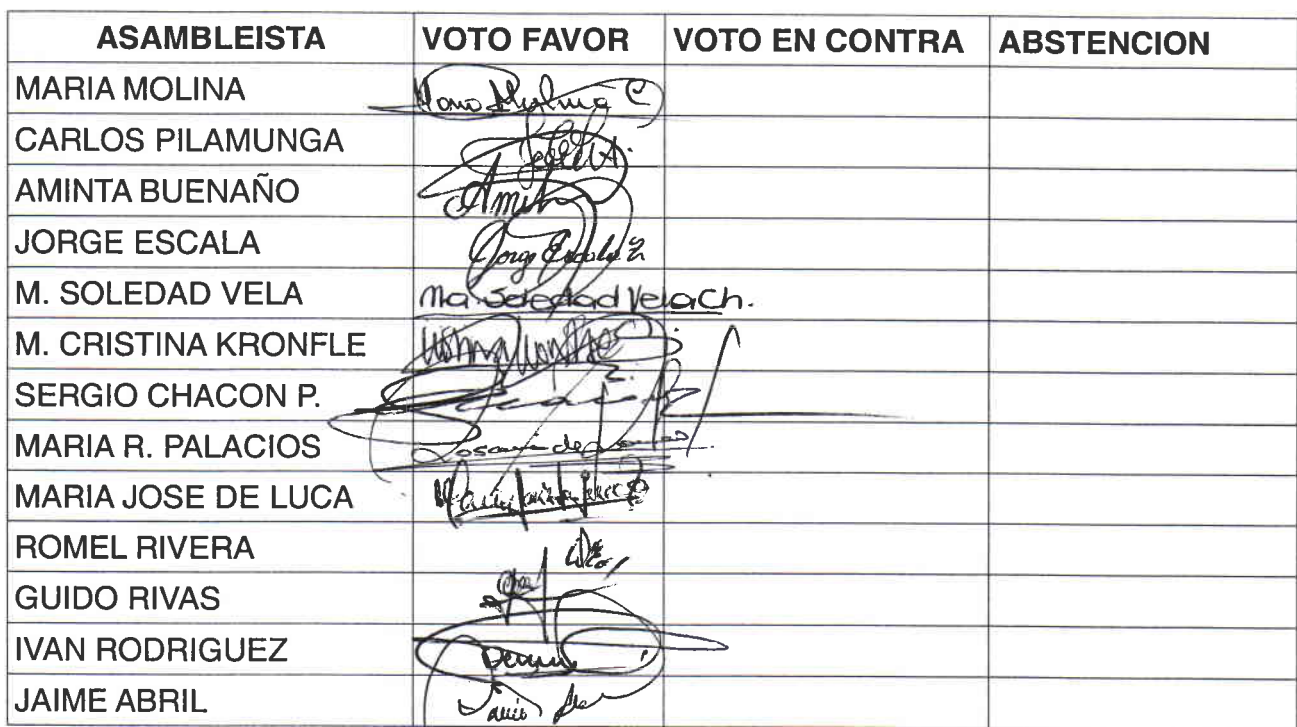 ASAMBLEISTA VOTO FAVOR VOTO EN CONTRA ABSTENCION
MARIA MOLINA
CARLOS PILAMUNGA
AMINTA BUENAÑO
JORGE ESCALA Jorge Escala
M. SOLEDAD VELA Ma. Soledad Vela Ch.
M. CRISTINA KRONFLE
SERGIO CHACON P.
MARIA R. PALACIOS
MARIA JOSE DE LUCA
ROMEL RIVERA
GUIDO RIVAS
IVAN RODRIGUEZ
JAIME ABRIL